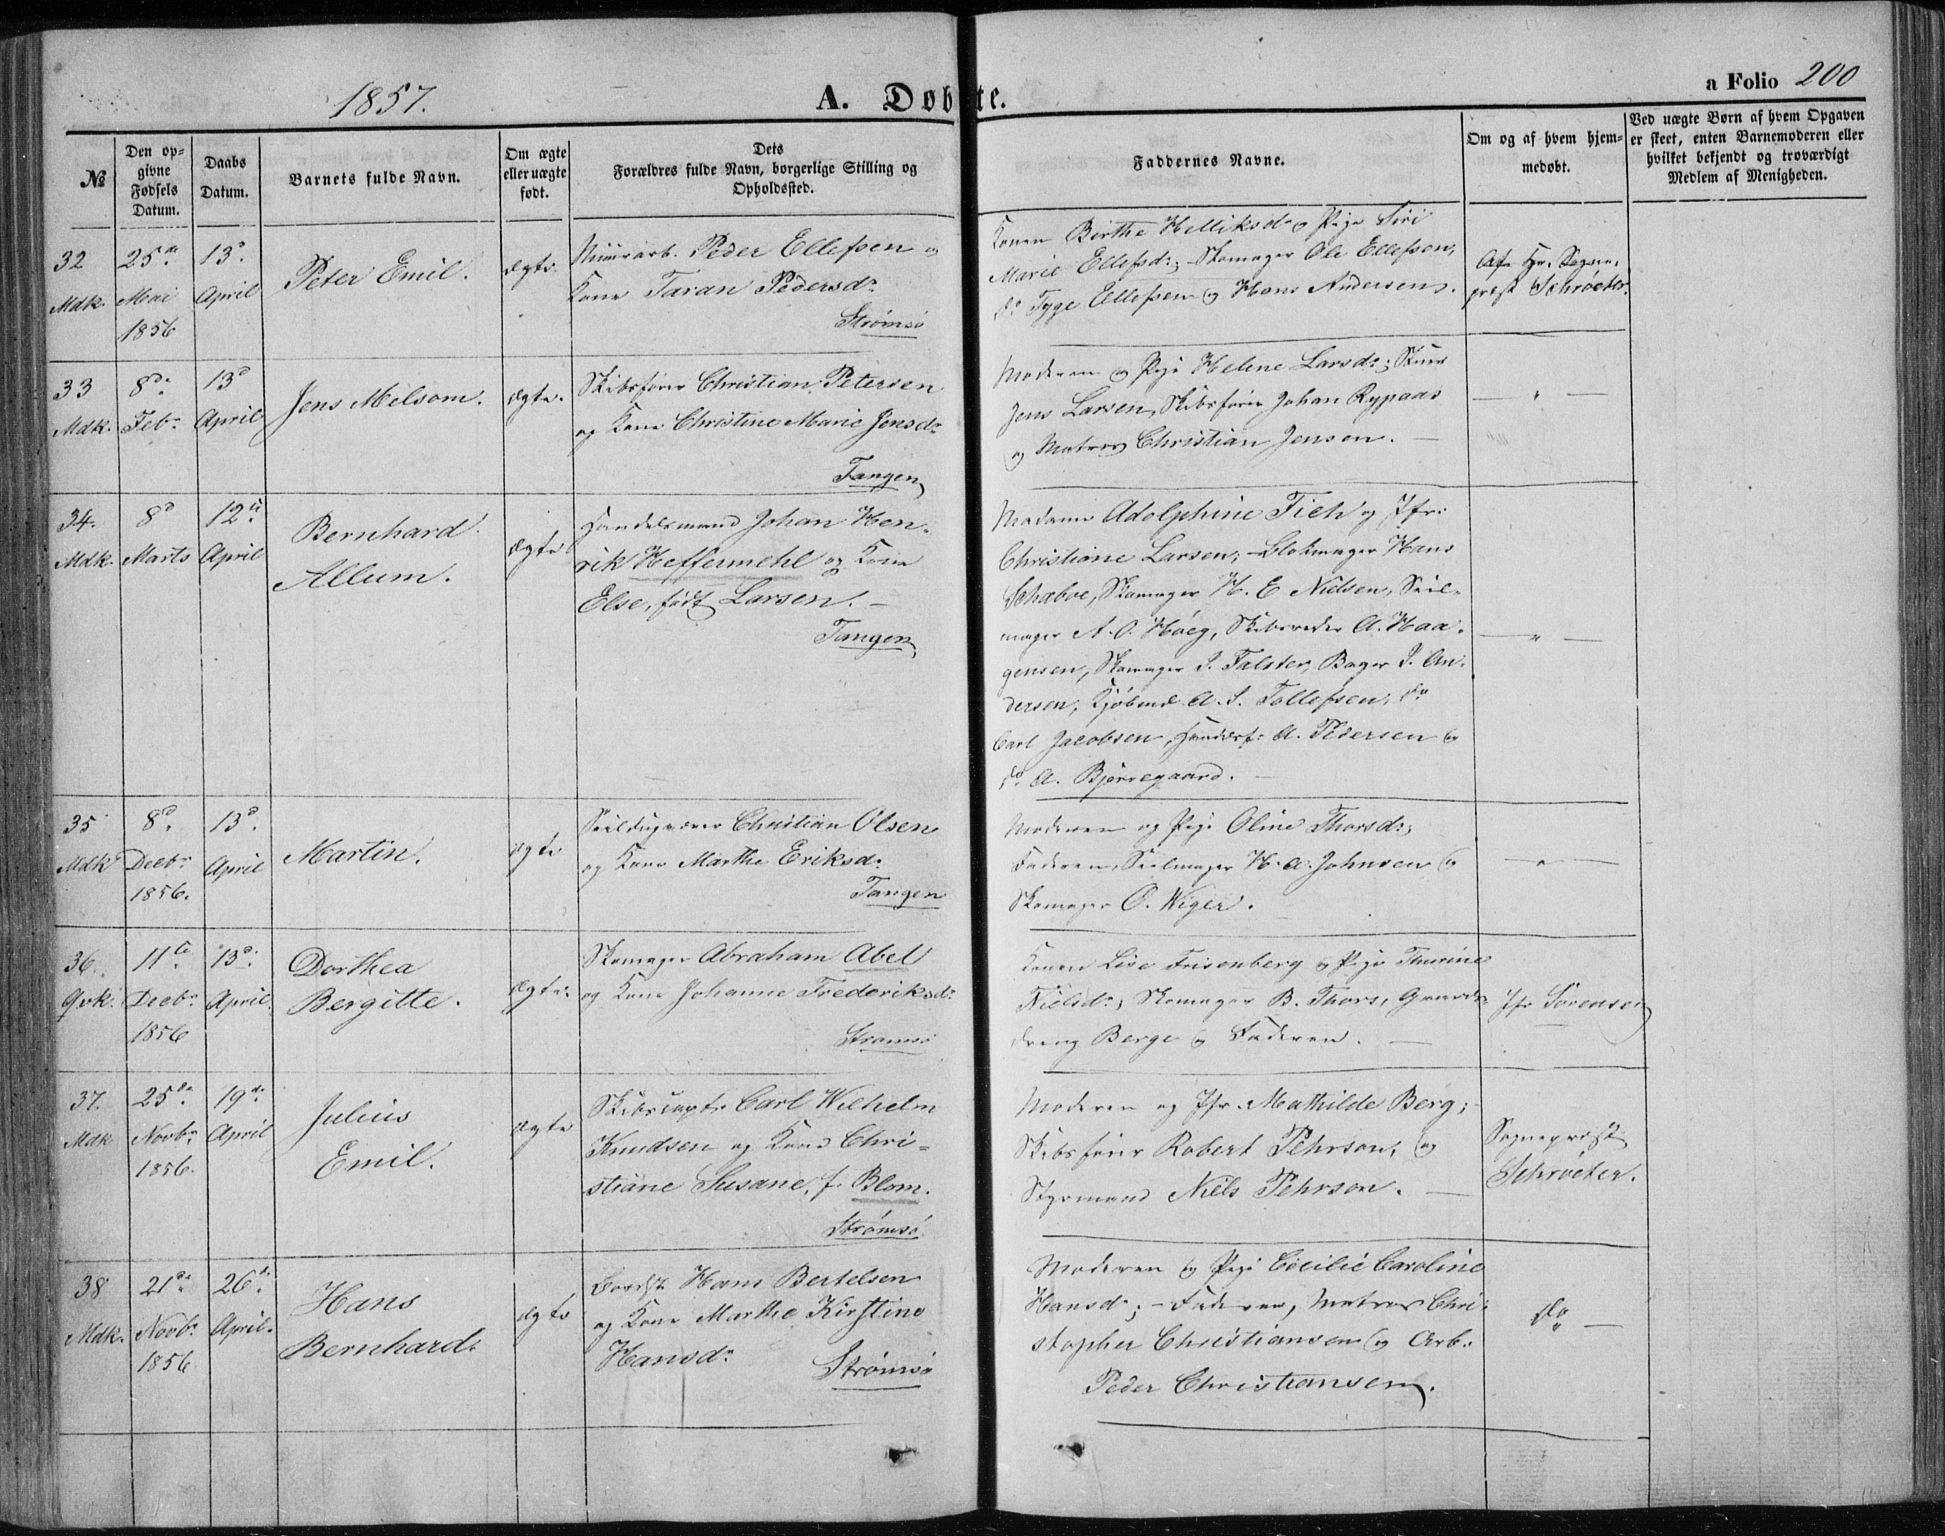 1857.
A. Døbte.
a Folio 200
No
Den opgivne Fødsels Datum.
Daabs Datum.
Barnets fulde Navn.
Om ægte eller uægte født.
Dets Forældres fulde Navn, borgerlige Stilling og Opholdssted.
Faddernes Navne.
Om og af hvem hjemmedøbt.
Ved uægte Børn af hvem Opgaven er skeet, enten Barnemoderen eller hvilket bekjendt og troværdigt Medlem af Menigheden.
32 Mdk.
25de Mai 1856
13d April
Peter Emil.
ægte.
Peder Ellefsen og
Kone Taran Pedersdr
Strømsø
Konen Birthe Helliksdr & Pige Siri
Marie Ellefsdr; Skomager Ole Ellefsen,
do Tyge Ellefsen & Hans Andersen.
Af Hr. Sogne-
prest Schrøeter.
33 Mdk.
8de Febr
13d April
Jens Melsom.
ægte.
Skibsfører Christian Petersen
og Kone Christine Marie Jensdr
Tangen
Moderen & Pige Helene Larsdr;
Jens Larsen, Skibsfører Johan Rypaas
og Matros Christian Jensen. —
— " —
34. Mdk.
8d Marts
12te April
Bernhard
Allum.
ægte
Handelsmand Johan Hen-
rik Heffermehl og Kone
Else, født Larsen. —
Tangen
Madame Adolphine Fich og Jfr:
Christiane Larsen; Blokmager Hans
Schaboe, Skomager H. E Nielsen, Seil-
mager A. O. Høeg, Skibsreder A. Haa-
gensen, Skomager P. Falster, Bager P. An-
dersen, Kjøbmd A. S. Tollefsen, do
Carl Jacobsen, A. Pedersen &
do A. Bjerregaard. —
— " —
35 Mdk
8d Decbr 1856.
13d. April
Martin.
ægte
Christian Olsen
og Kone Marthe Eriksdr
Tangen
Moderen og Pige Oline Thorsdr;
Faderen, Seilmager H. A. Johnsen &
Skomager O. Wiger.
— " —
36. Qvk.
11te Decbr 1856
13d. April
Dorthea
Bergitte.
ægte.
Skomager Abraham Abel
og Kone Johanne Frederiksdr
Strømsø
Konen Lise Frisenberg & Pige Thurine
Nielsdr; Skomager B. Thors, Gaards-
dreng Berge & Faderen. —
Jfr Sørensen
37. Mdk
25de Novbr 1856.
19de April
Julius
Emil.
ægte
Skibscapt. Carl Wilhelm
Knudsen og Kone Chri-
stiane Susane, f. Blom.
Strømsø
Moderen og Jfr. Mathilde Berg;
Skibsfører Robert Pehrson, &
Styrmand Niels Pehrson. —
Sogneprest
Schrøeter.
38 Mdk.
21de Novbr 1856
26de April.
Hans
Bernhard.
ægte
Hans Bertelsen
og Kone Marthe Kirstine
Hansdr
Strømsø
Moderen & Pige Cecilie Caroline
Hansdr; — Faderen, Matros Chri-
stopher Christiansen & Arb.
Peder Christiansen.
do —